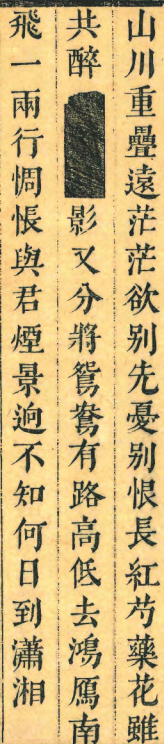 山川重疊遠茫茫欲别先憂别恨長紅芍藥花雖
共醉影又分將鴛鴦有路高低去鴻鴈南
飛一兩行惆悵與君煙景逈不知何日到瀟湘